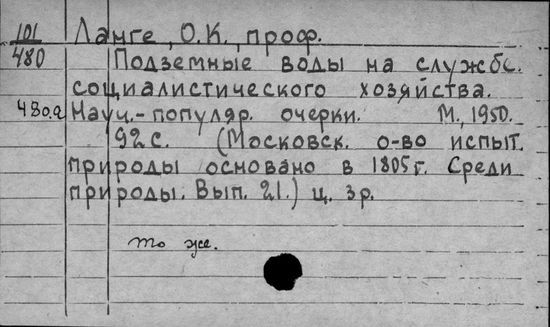 101 Ланге, О.К., проф.
480 Подземные воды на службе.
социалистического хозяйства.
480a Науч.-популяр. очерки. М., 1950.
92 с. (Московск. о-во испыт.
природы основано в 1805 г. Среди
природы. Вып. 21.) ц. 3р.
то же.